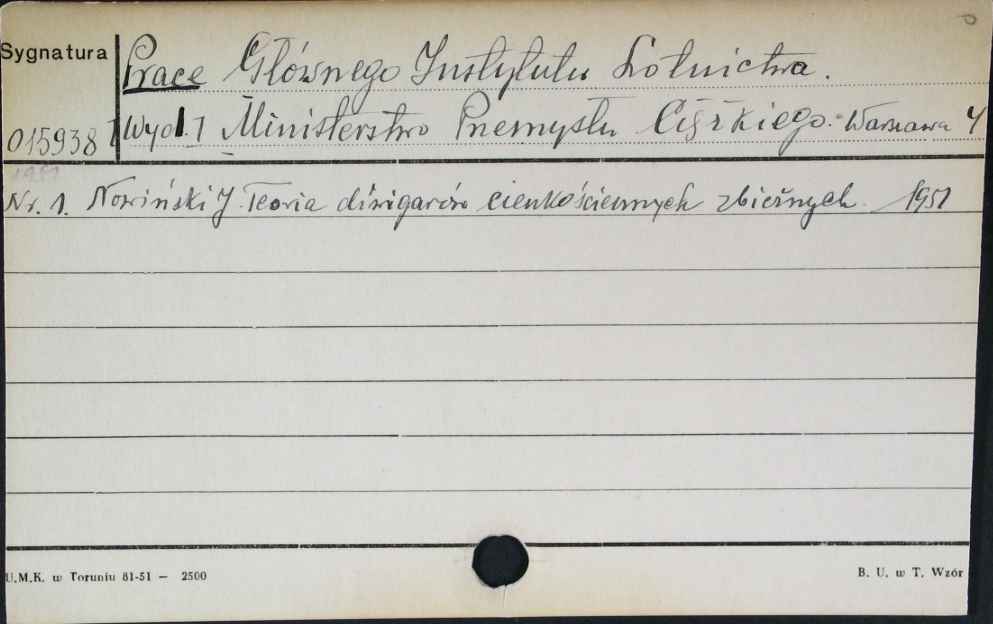 Sygnatura Prace Głównego Instytutu Lotnictwa.
015938 Wyd. Ministerstwo Przemysłu Ciężkiego. Warszawa 4
1951
Nr. 1. Nowiński J. Teoria dźwigarów cienkościennych zbieżnych. 1951
U.M.K. w Toruniu 81-51 — 2500
B. U. w T. Wzór